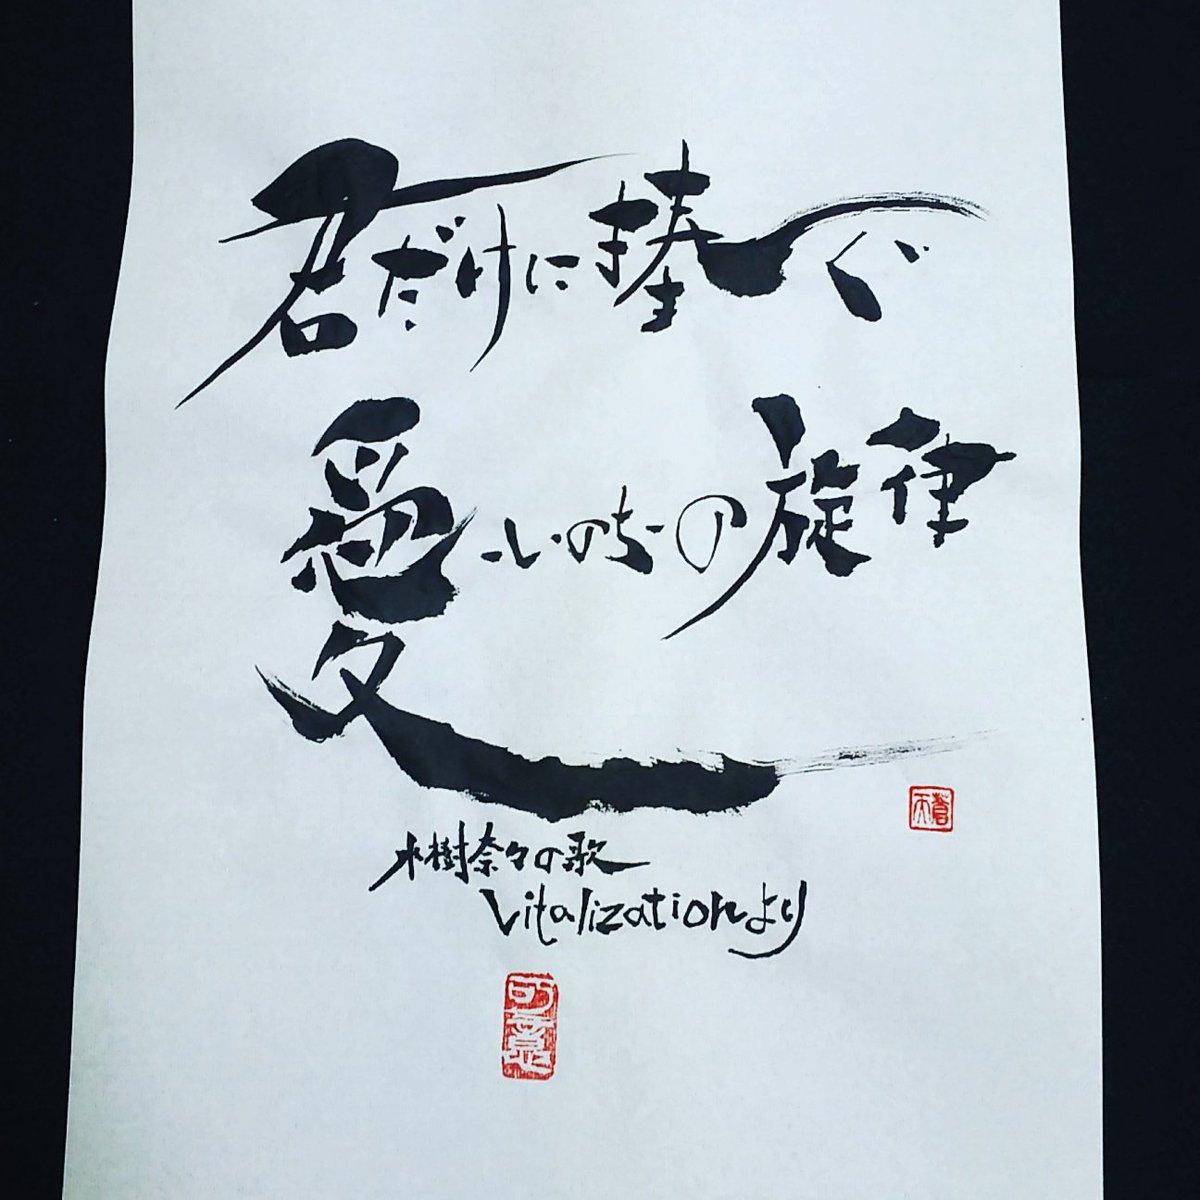 君だけに捧ぐ
愛-いのち-の旋律
水樹奈々の歌
Vitalizationより